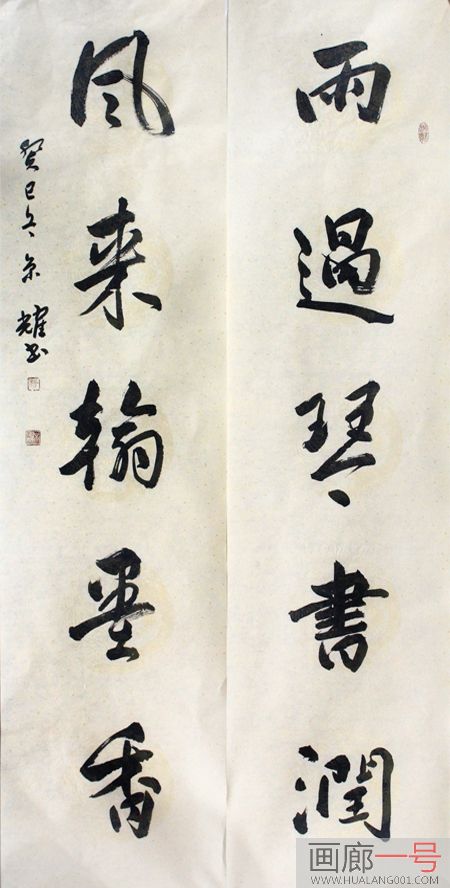 雨過琴書潤
風来翰墨香
癸巳冬京耀书
画廊一号
WWW.HUALANG001.COM